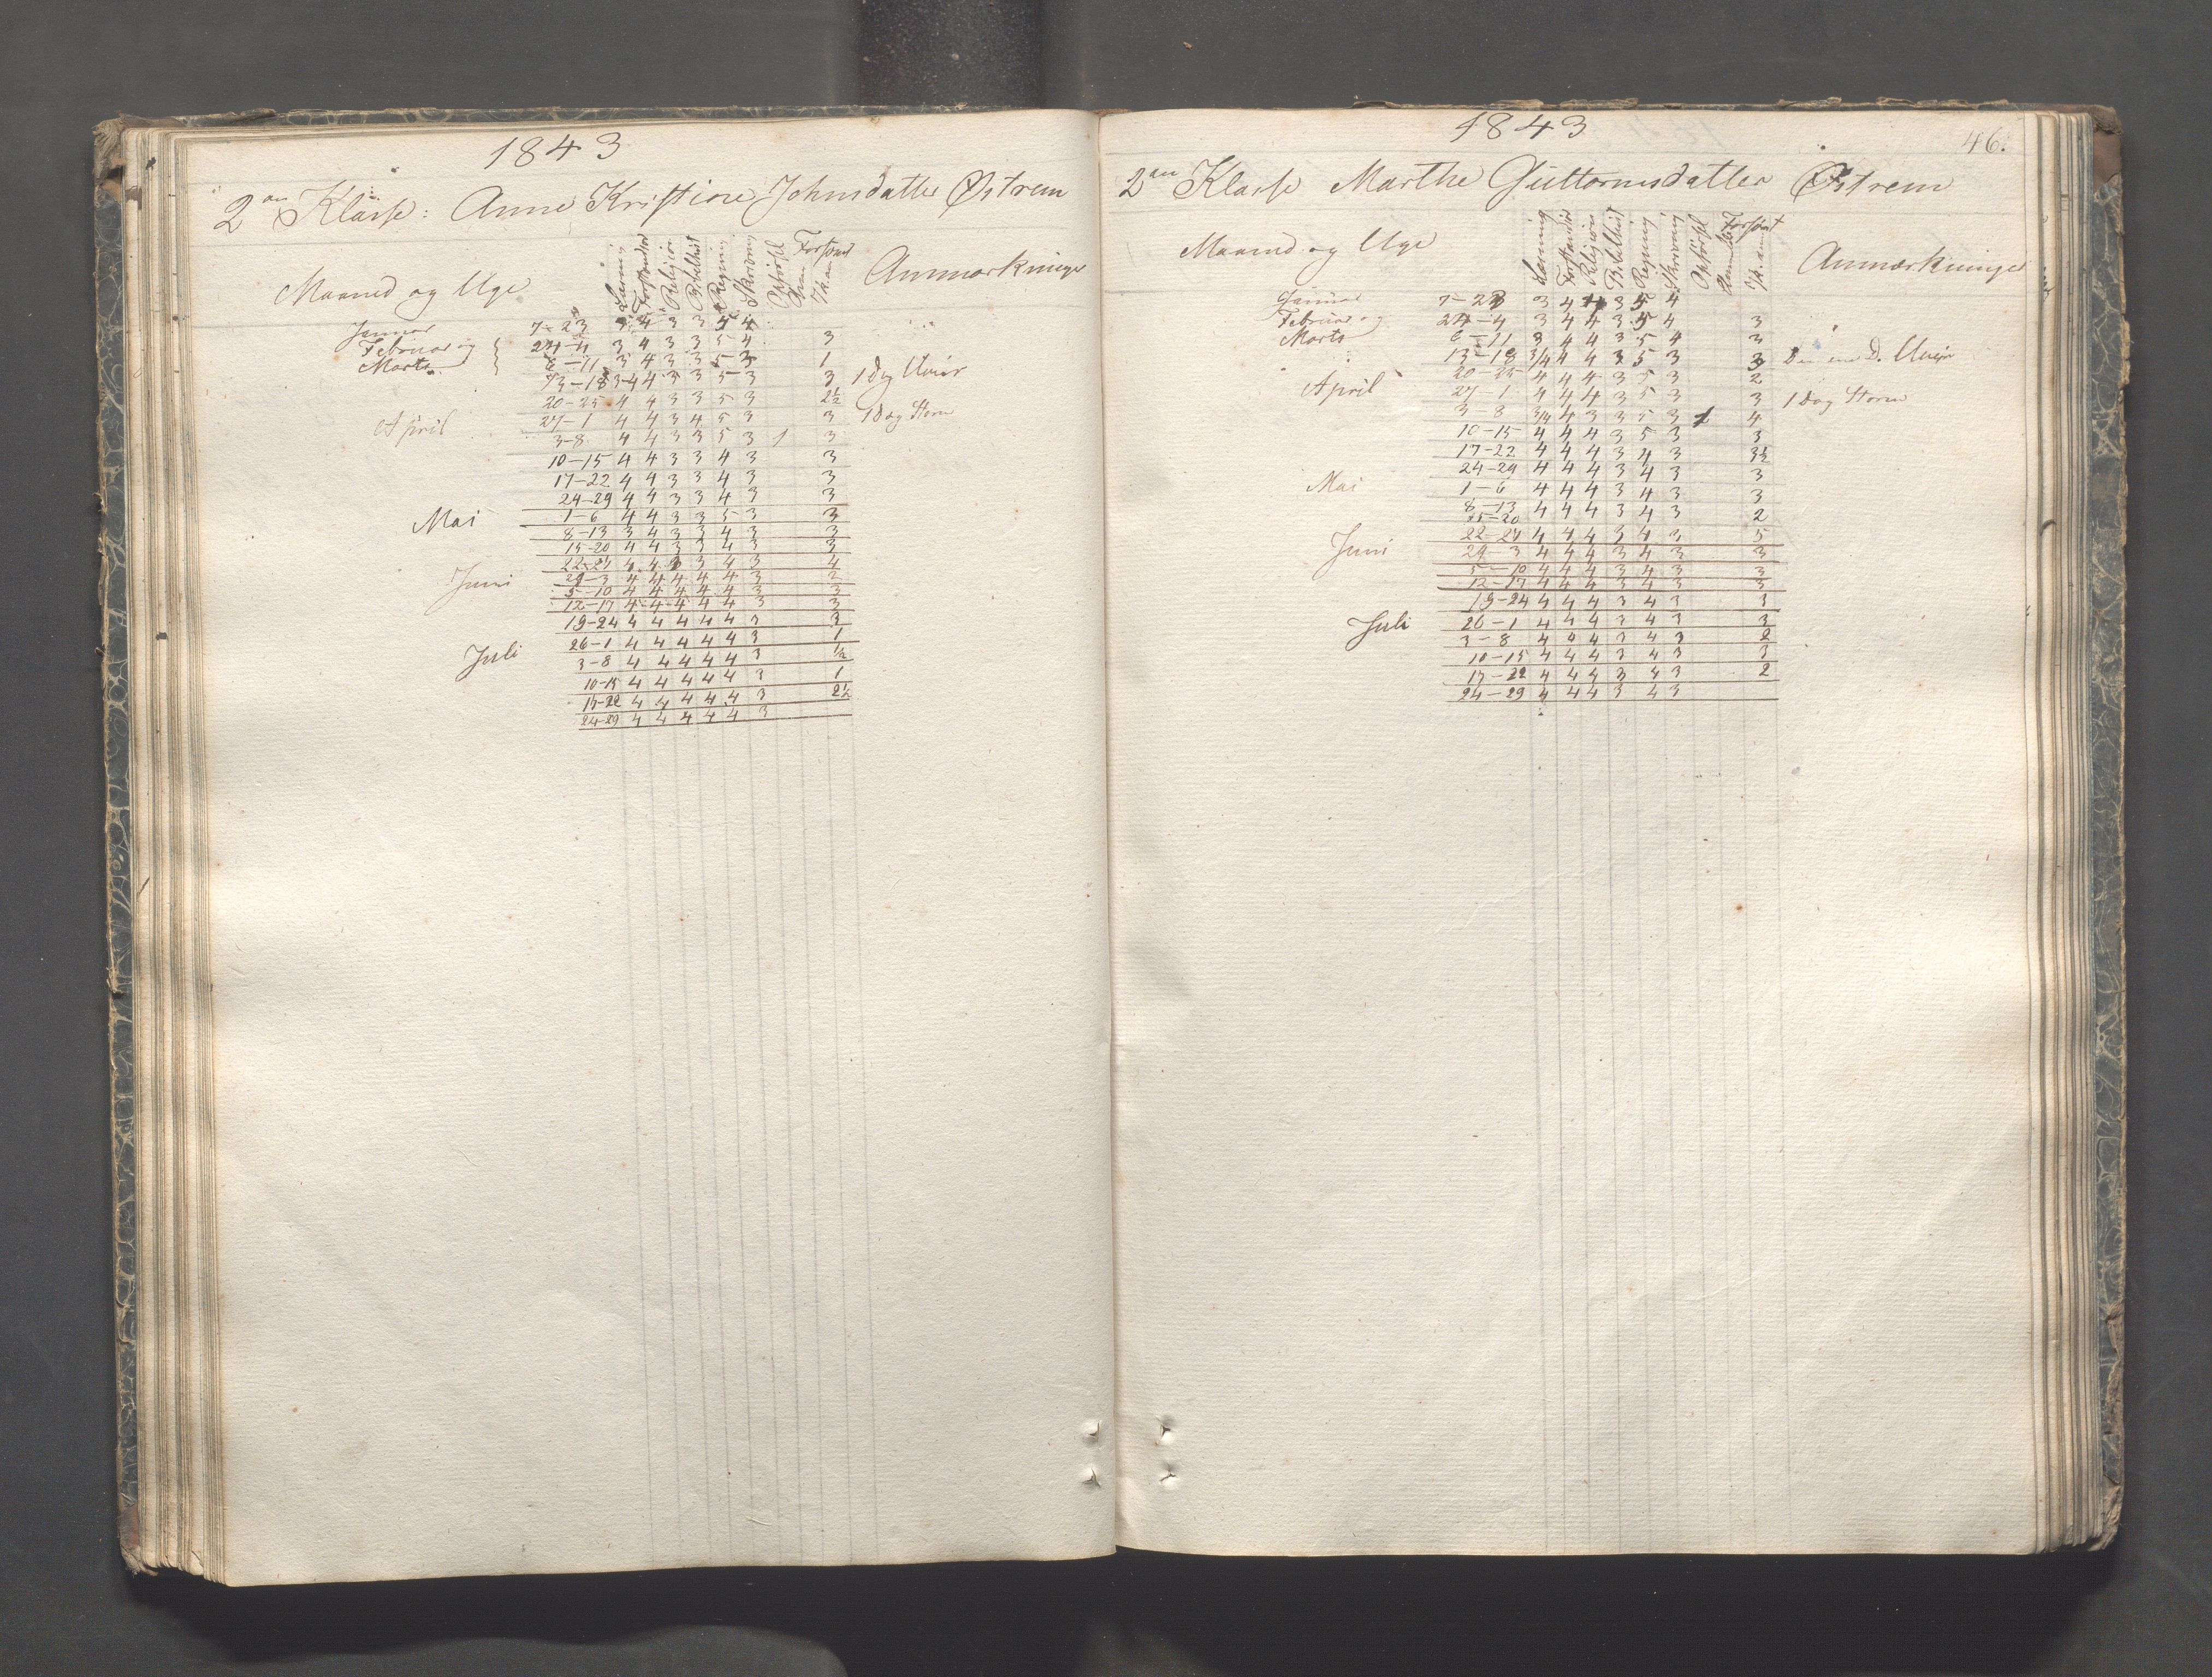 1843
2en Klasse: Anne Kristine Johnsdatter Østrem
Maaned og Uge Læsning Forstand Religion Bibelhist Regning Skrivning Opførsel Forsømt Anmærkninger
Januar 7-23 3 4 3 3 5 4
Februar og 24-4 3 4 3 3 5 4 3
Marts 6-11 3 4 3 3 5 3 1
13-18 3-4 4 3 3 5 3 3 1 Dag
20-25 4 4 3 3 5 3 2½
April 27-1 4 4 3 4 5 3 3 1 Dag Storm
3-8 4 4 3 3 5 3 1 3
10-15 4 4 3 3 4 3 3
17-22 4 4 3 3 4 3 3
24-29 4 4 3 3 4 3 3
Mai 1-6 4 4 3 3 5 3 3
8-13 3 4 3 3 4 3 3
15-20 4 4 3 3 4 3 3
22-27 4 4 3 3 4 3 4
Juni 29-3 4 4 4 4 4 3 3
5-10 4 4 4 4 4 3 3
12-17 4 4 4 4 4 3 3
19-24 4 4 4 4 4 3 3
26-1 4 4 4 4 4 3 1
Juli 3-8 4 4 4 4 4 3 1½
10-15 4 4 4 4 4 3 1
17-22 4 4 4 4 4 3 2½
24-29 4 4 4 4 4 3
1843
46.
2en Klasse Marthe Guttormsdatter Østrem
Maaned og Uge Læsning Forstand Religion Bibelhist Regning Skrivning Opførsel Forsømt Anmærkninger
Januar 7-23 3 4 4 3 5 4
Februar og 24-4 3 4 4 3 5 4 3
Marts 6-11 3 4 4 3 5 4 3
13-18 3/4 4 4 3 5 3 3 Den ene D.
20-25 4 4 4 3 5 3 2
April 27-1 4 4 4 3 5 3 3 1 Dag Storm
3-8 3/4 4 3 3 5 3 1 4
10-15 4 4 4 3 5 3 3
17-22 4 4 4 3 4 3 3½
24-29 4 4 4 3 4 3 3
Mai 1-6 4 4 4 3 4 3 3
8-13 4 4 4 3 4 3 2
15-20
22-27 4 4 4 3 4 3 5
Juni 29-3 4 4 4 3 4 3 3
5-10 4 4 4 3 4 3 3
12-17 4 4 4 3 4 3 3
19-24 4 4 4 3 4 3 3
Juli 26-1 4 4 4 3 4 3 3
3-8 4 4 4 3 4 3 2
10-15 4 4 4 3 4 3 3
17-22 4 4 4 3 4 3 2
24-29 4 4 4 3 4 3